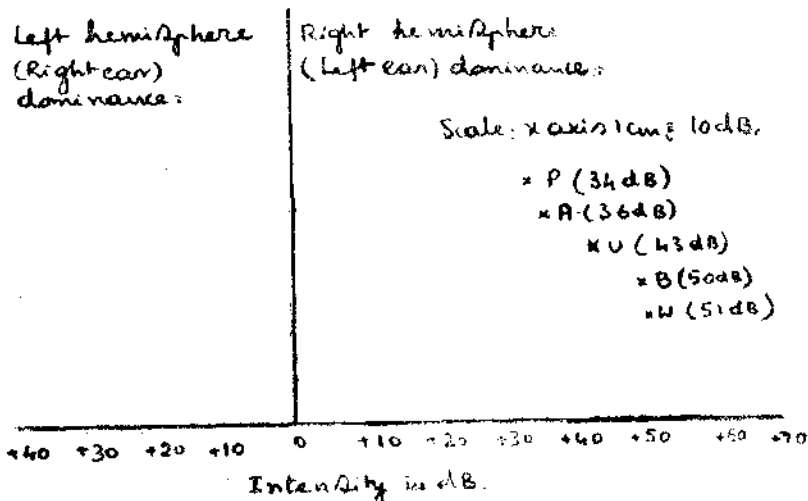 Left hemisphere
(Right ear)
dominance:
Right hemisphere
(Left ear) dominance:
Scale: x axis 1cm = 10 dB.
× P (34 dB)
× A (36 dB)
× U (43 dB)
× B (50 dB)
× W (51 dB)
+40 +30 +20 +10 0 +10 +20 +30 +40 +50 +60 +70
Intensity in dB.